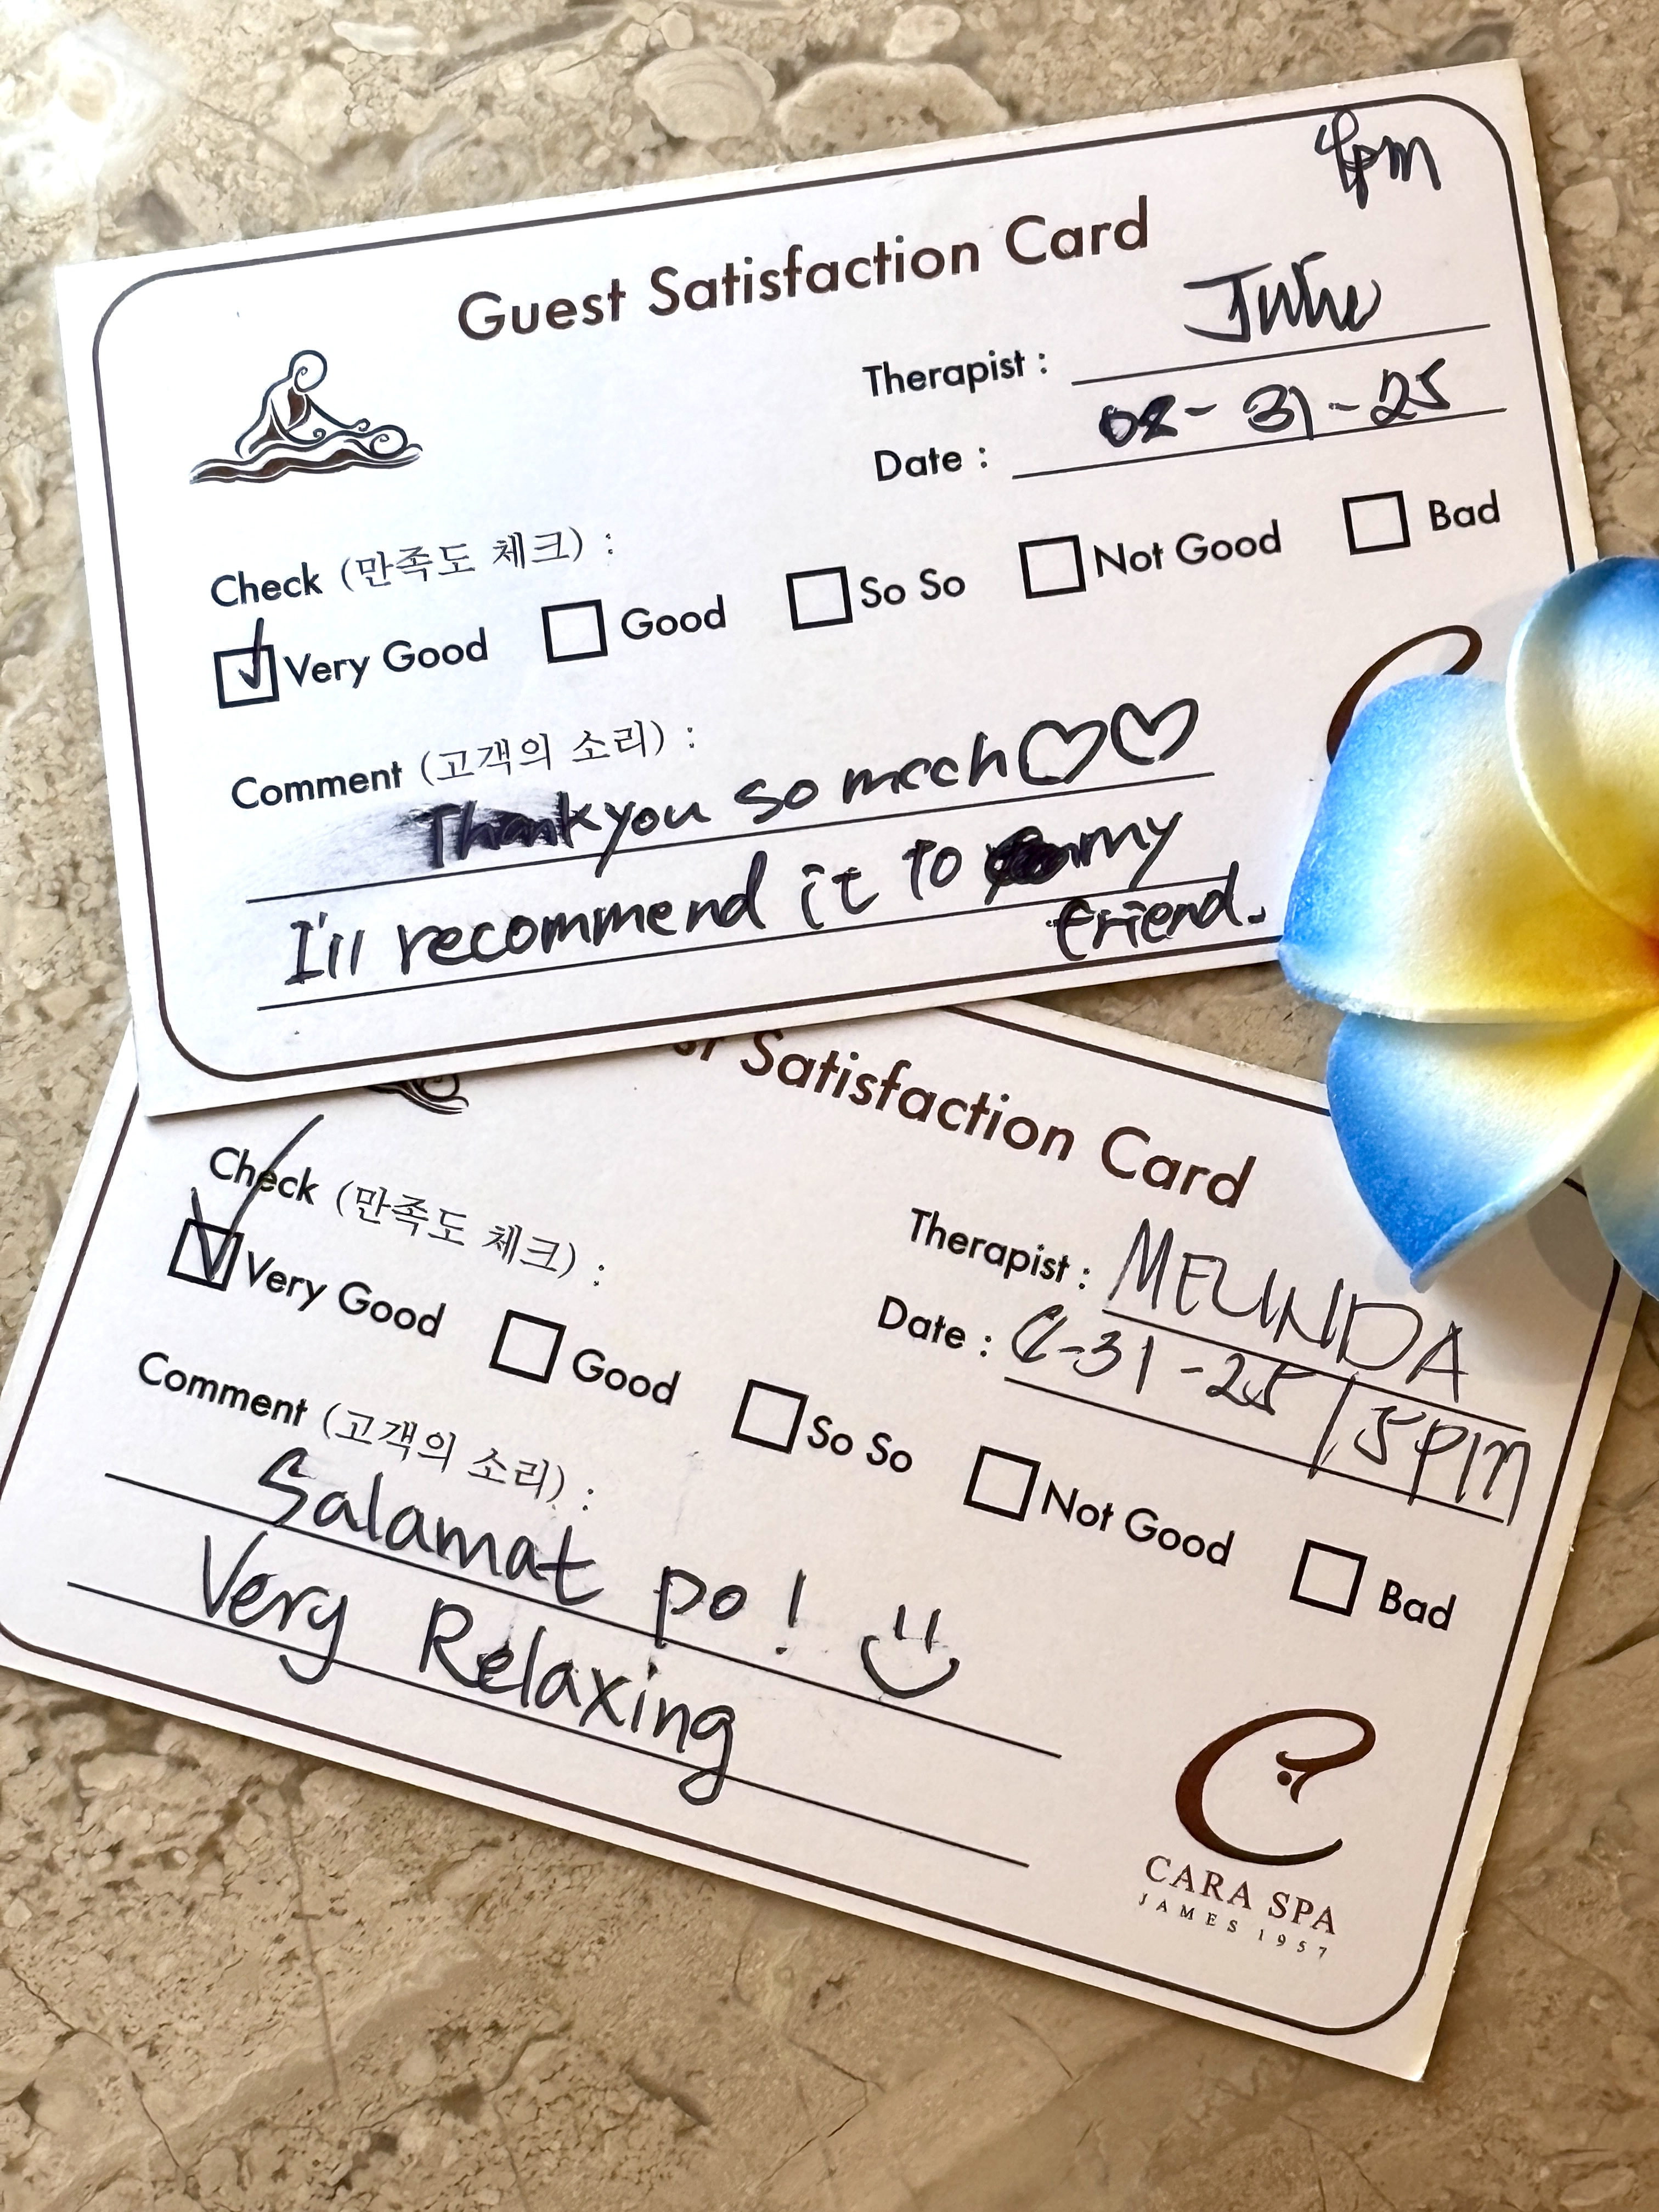 Guest Satisfaction Card
Therapist :
Date : 08-31-25
Check (만족도 체크) :
Very Good Good So So Not Good Bad
Comment (고객의 소리) :
Thank you so mcch♡♡
I'll recommend it to my
friend.
Satisfaction Card
Therapist : MELINDA
Date : 8-31-25 / 5pm
Check (만족도 체크) :
Very Good Good So So Not Good Bad
Comment (고객의 소리) :
Salamat po!
Very Relaxing
CARA SPA
JAMES 1957